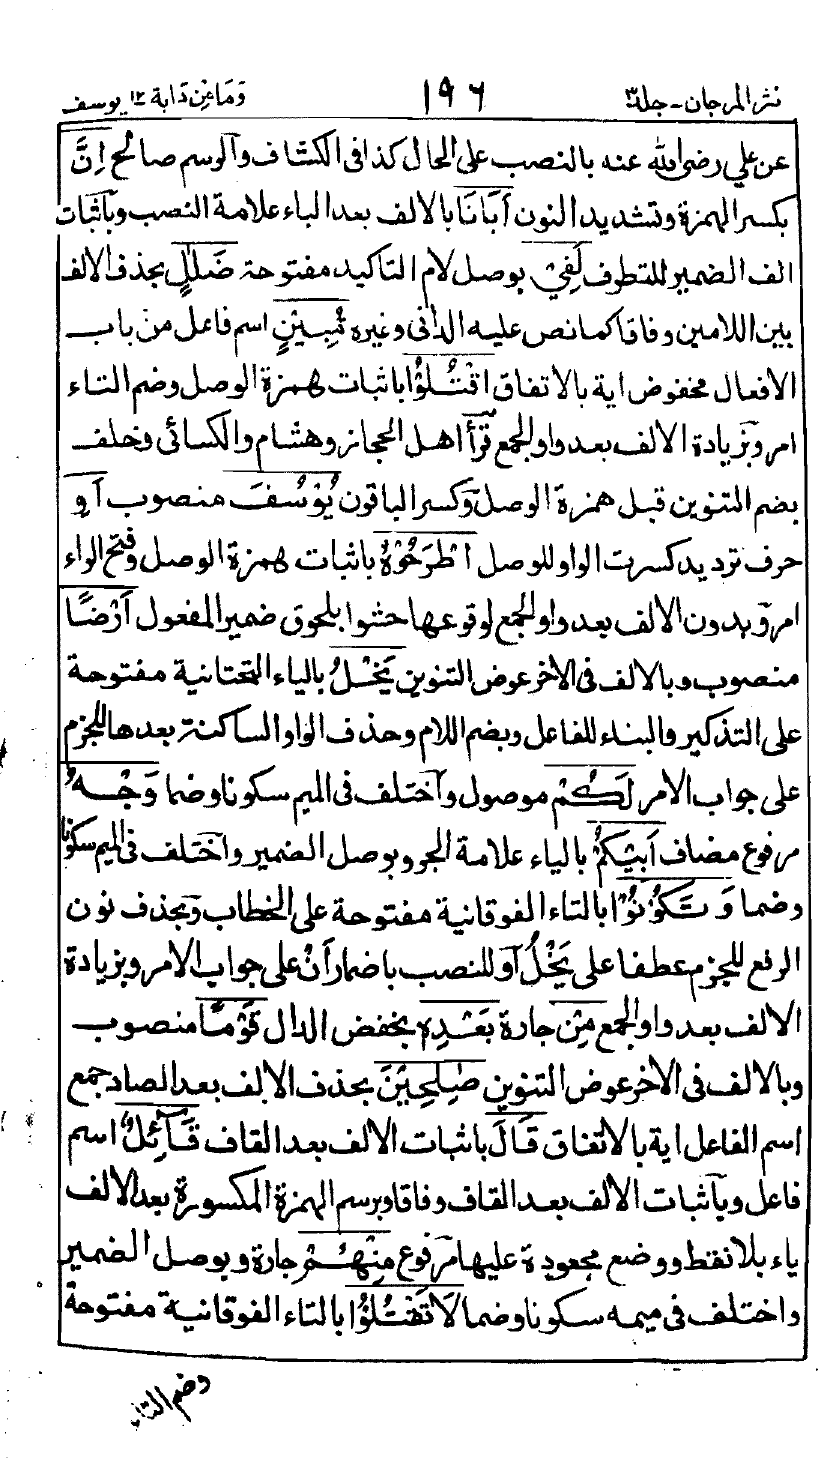 نثر المرجان - جلد ٣ ١٩٦ وما من دابة ١٢ يوسف
عن علي رضي الله عنه بالنصب على الحال كذا في الكشاف والوسم صالح اِنَّ
بكسر الهمزة وتشديد النون اَبَانَا بالالف بعد الباء علامة النصب وباثبات
الف الضمير للتطرف لَفِيْ بوصل لام التاكيد مفتوحة ضَلٰلٍ بحذف الالف
بين اللامين وفاقا كما نص عليه الداني وغيره مُّبِيْنٍ اسم فاعل من باب
الافعال مخفوض اية بالاتفاق اقْتُلُوْا باثبات همزة الوصل وضم التاء
امر وبزيادة الالف بعد واو الجمع قرأ اهل الحجاز وهشام والكسائي وخلف
بضم التنوين قبل همزة الوصل وكسر الباقون يُوْسُفَ منصوب اَوِ
حرف ترديد كسرت الواو للوصل اطْرَحُوْهُ باثبات همزة الوصل وفتح الراء
امر وبدون الالف بعد واو الجمع لوقوعها حشوا بلحوق ضمير المفعول اَرْضًا
منصوب وبالالف في الاخر عوض التنوين يَخْلُ بالياء التحتانية مفتوحة
على التذكير والبناء للفاعل وبضم اللام وحذف الواو الساكنة بعدها للجزم
على جواب الامر لَكُمْ موصول واختلف في الميم سكونا وضما وَجْهُ
مرفوع مضاف اَبِيْكُمْ بالياء علامة الجر وبوصل الضمير واختلف في الميم سكونا
وضما وَتَكُوْنُوْا بالتاء الفوقانية مفتوحة على الخطاب وبحذف نون
الرفع للجزم عطفا على يَخْلُ او للنصب باضمار اَنْ على جواب الامر وبزيادة
الالف بعد واو الجمع مِنْ جارة بَعْدِهٖ بخفض الدال قَوْمًا منصوب
وبالالف في الاخر عوض التنوين صٰلِحِيْنَ بحذف الالف بعد الصاد جمع
اسم الفاعل اية بالاتفاق قَالَ باثبات الالف بعد القاف قَآئِلٌ اسم
فاعل وباثبات الالف بعد القاف وفاقا وبرسم الهمزة المكسورة بعد الالف
ياء بلا نقط ووضع مجعودة عليها مرفوع مِّنْهُمْ جارة وبوصل الضمير
واختلف في ميمه سكونا وضما لَا تَقْتُلُوْا بالتاء الفوقانية مفتوحة
وضم التاء